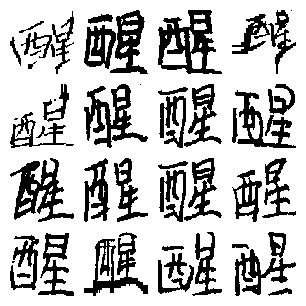 醒醒醒醒
醒醒醒醒
醒醒醒醒
醒醒醒醒